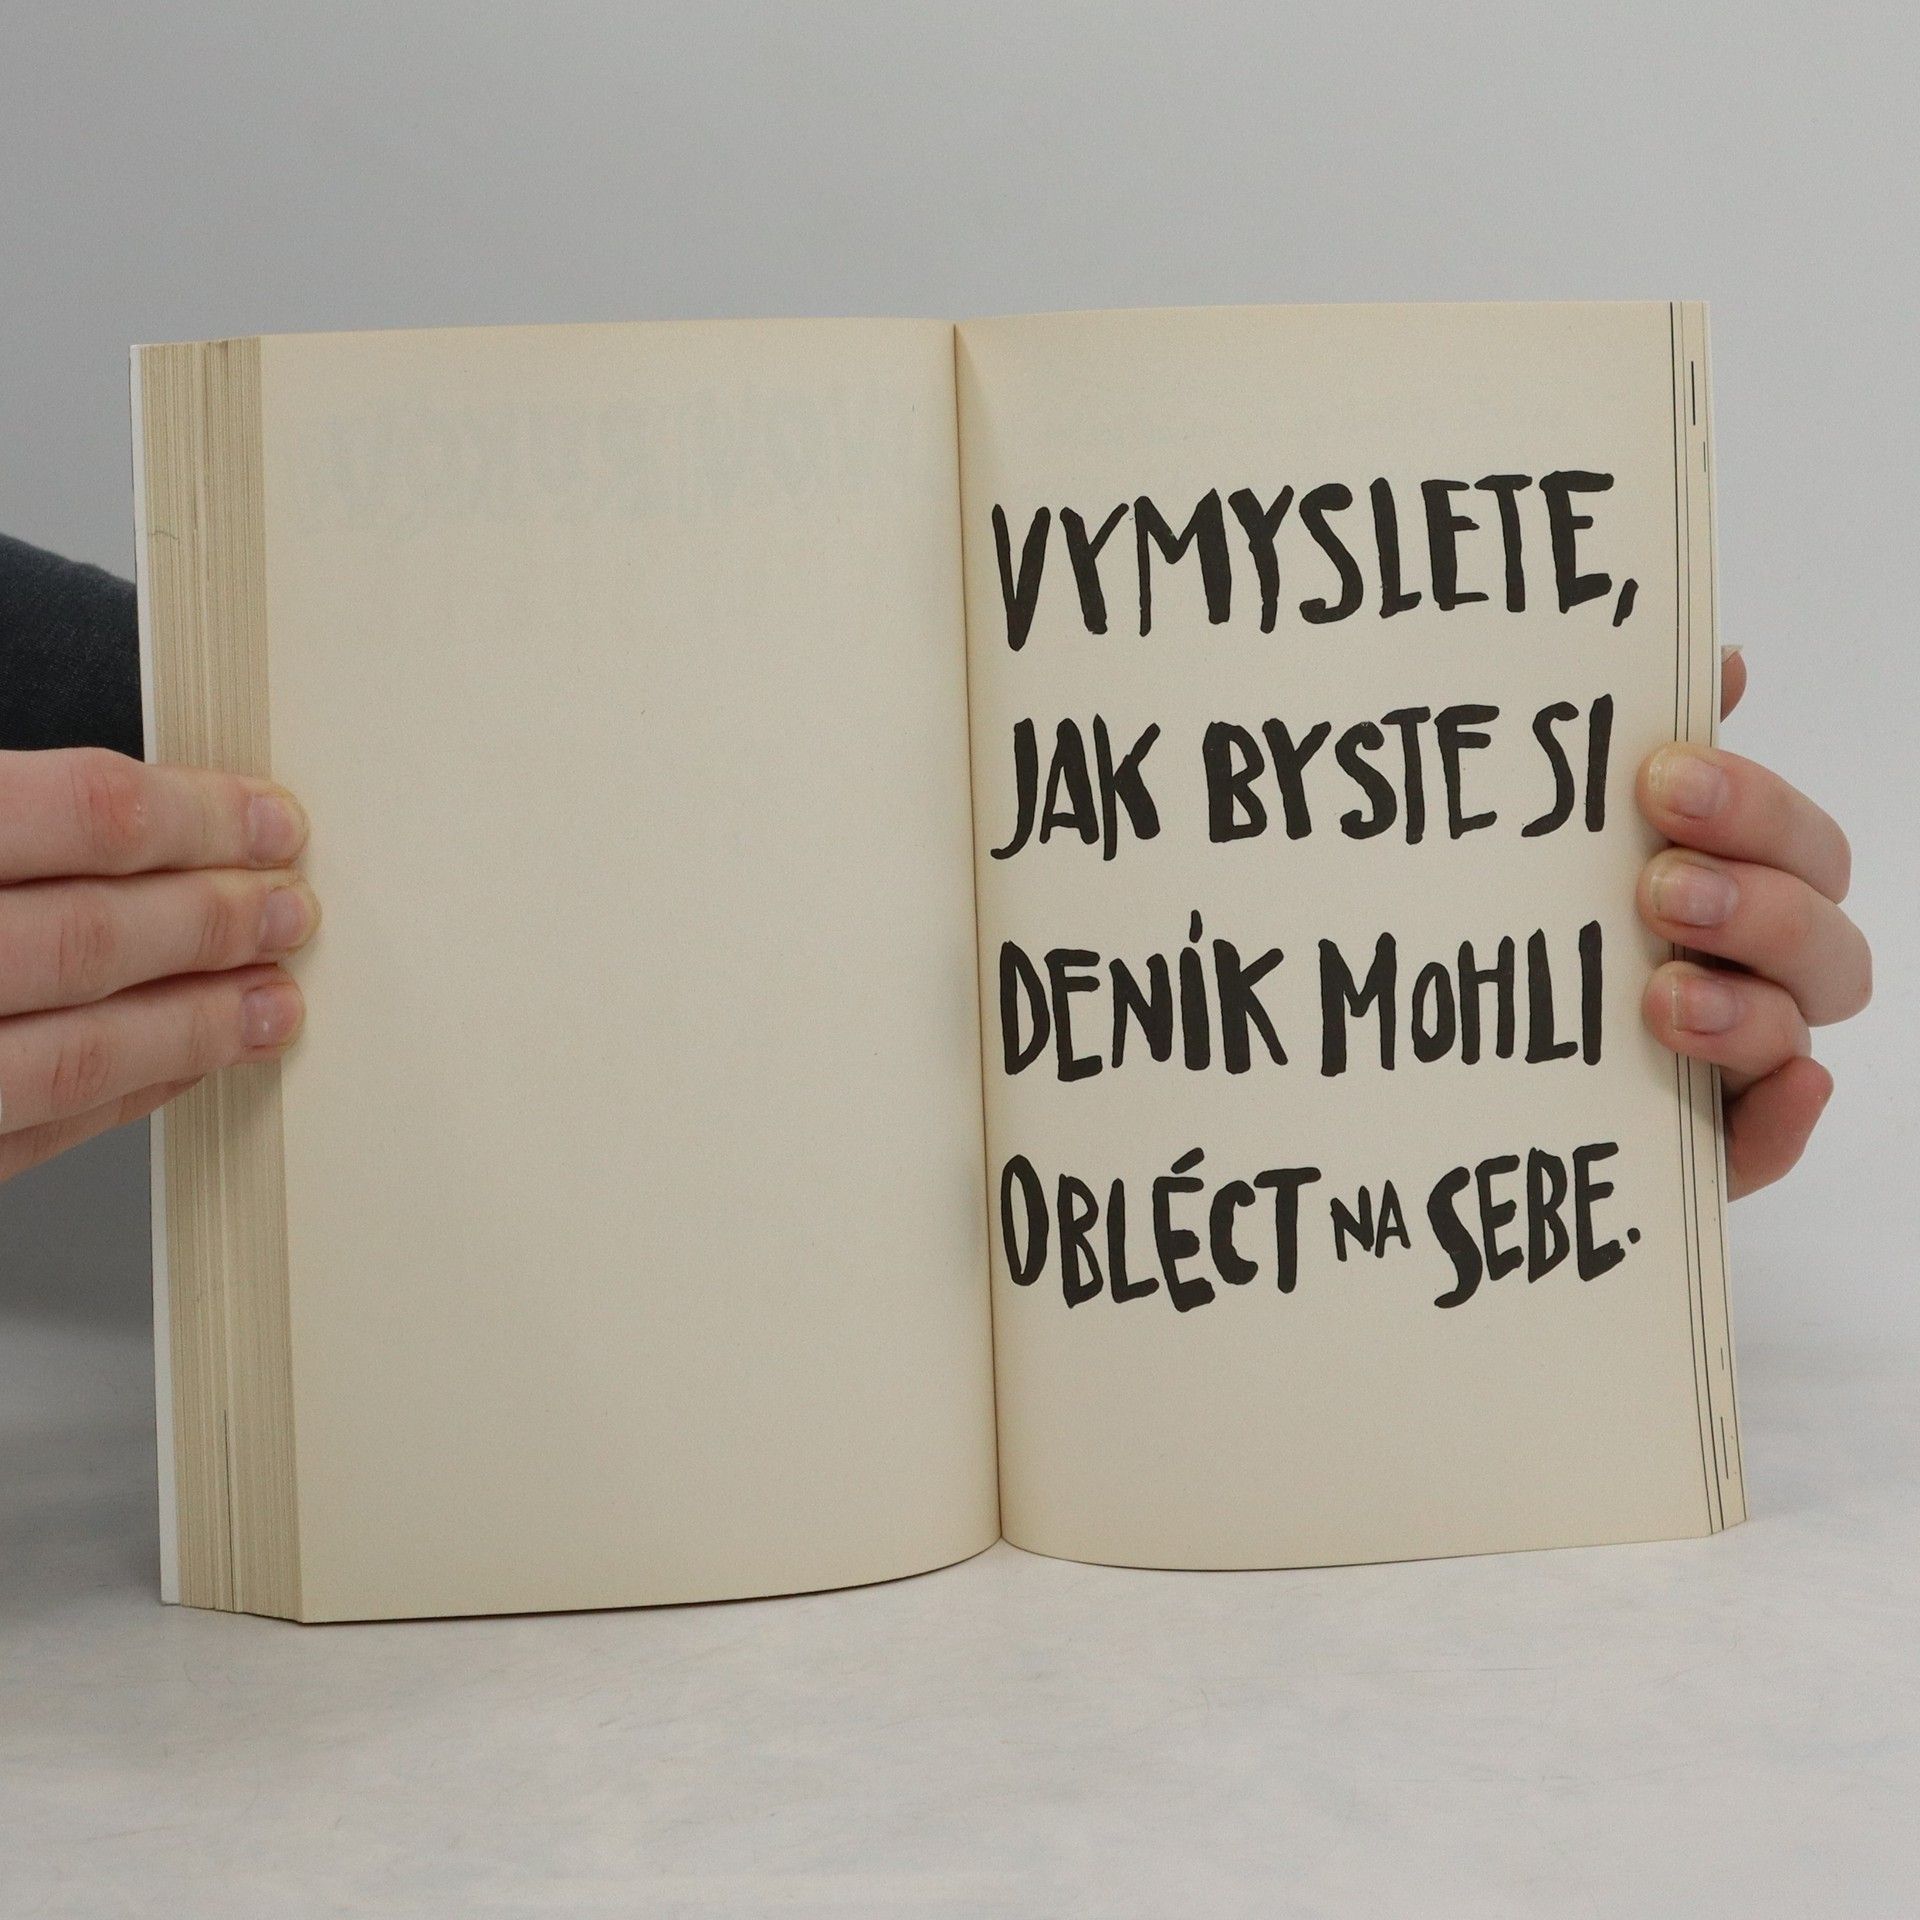 VYMYSLETE,
JAK BYSTE SI
DENÍK MOHLI
OBLÉCT NA SEBE.